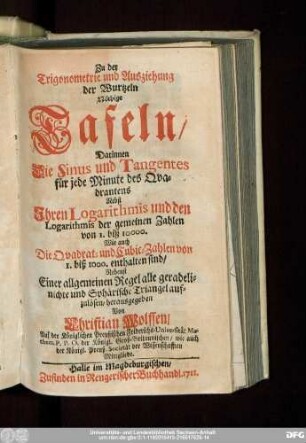 Zu der
Trigonometrie und Ausziehung
der Wurtzeln
Nöthige
Tafeln/
Darinnen
Die Sinus und Tangentes
für jede Minute des Qva-
drantens
Nebst
Ihren Logarithmis und den
Logarithmis der gemeinen Zahlen
von 1. biß 10000.
Wie auch
Die Qvadrat- und Cubic-Zahlen von
1. biß 1000. enthalten sind/
Nebenst
Einer allgemeinen Regel alle geradeli-
nichte und Sphärische Triangel auf-
zulösen/ herausgegeben
Von
Christian Wolffen/
Auf der Königlichen Preußischen Friderichs-Universität Ma-
them. P. P. O. der Königl. Groß-Britannischen/ wie auch
der Königl. Preuß. Societät der Wissenschafften
Mitgliede.
Halle im Magdeburgischen/
Zufinden in Rengerischer Buchhandl. 1711.
Universitäts- und Landesbibliothek Sachsen-Anhalt
DFG